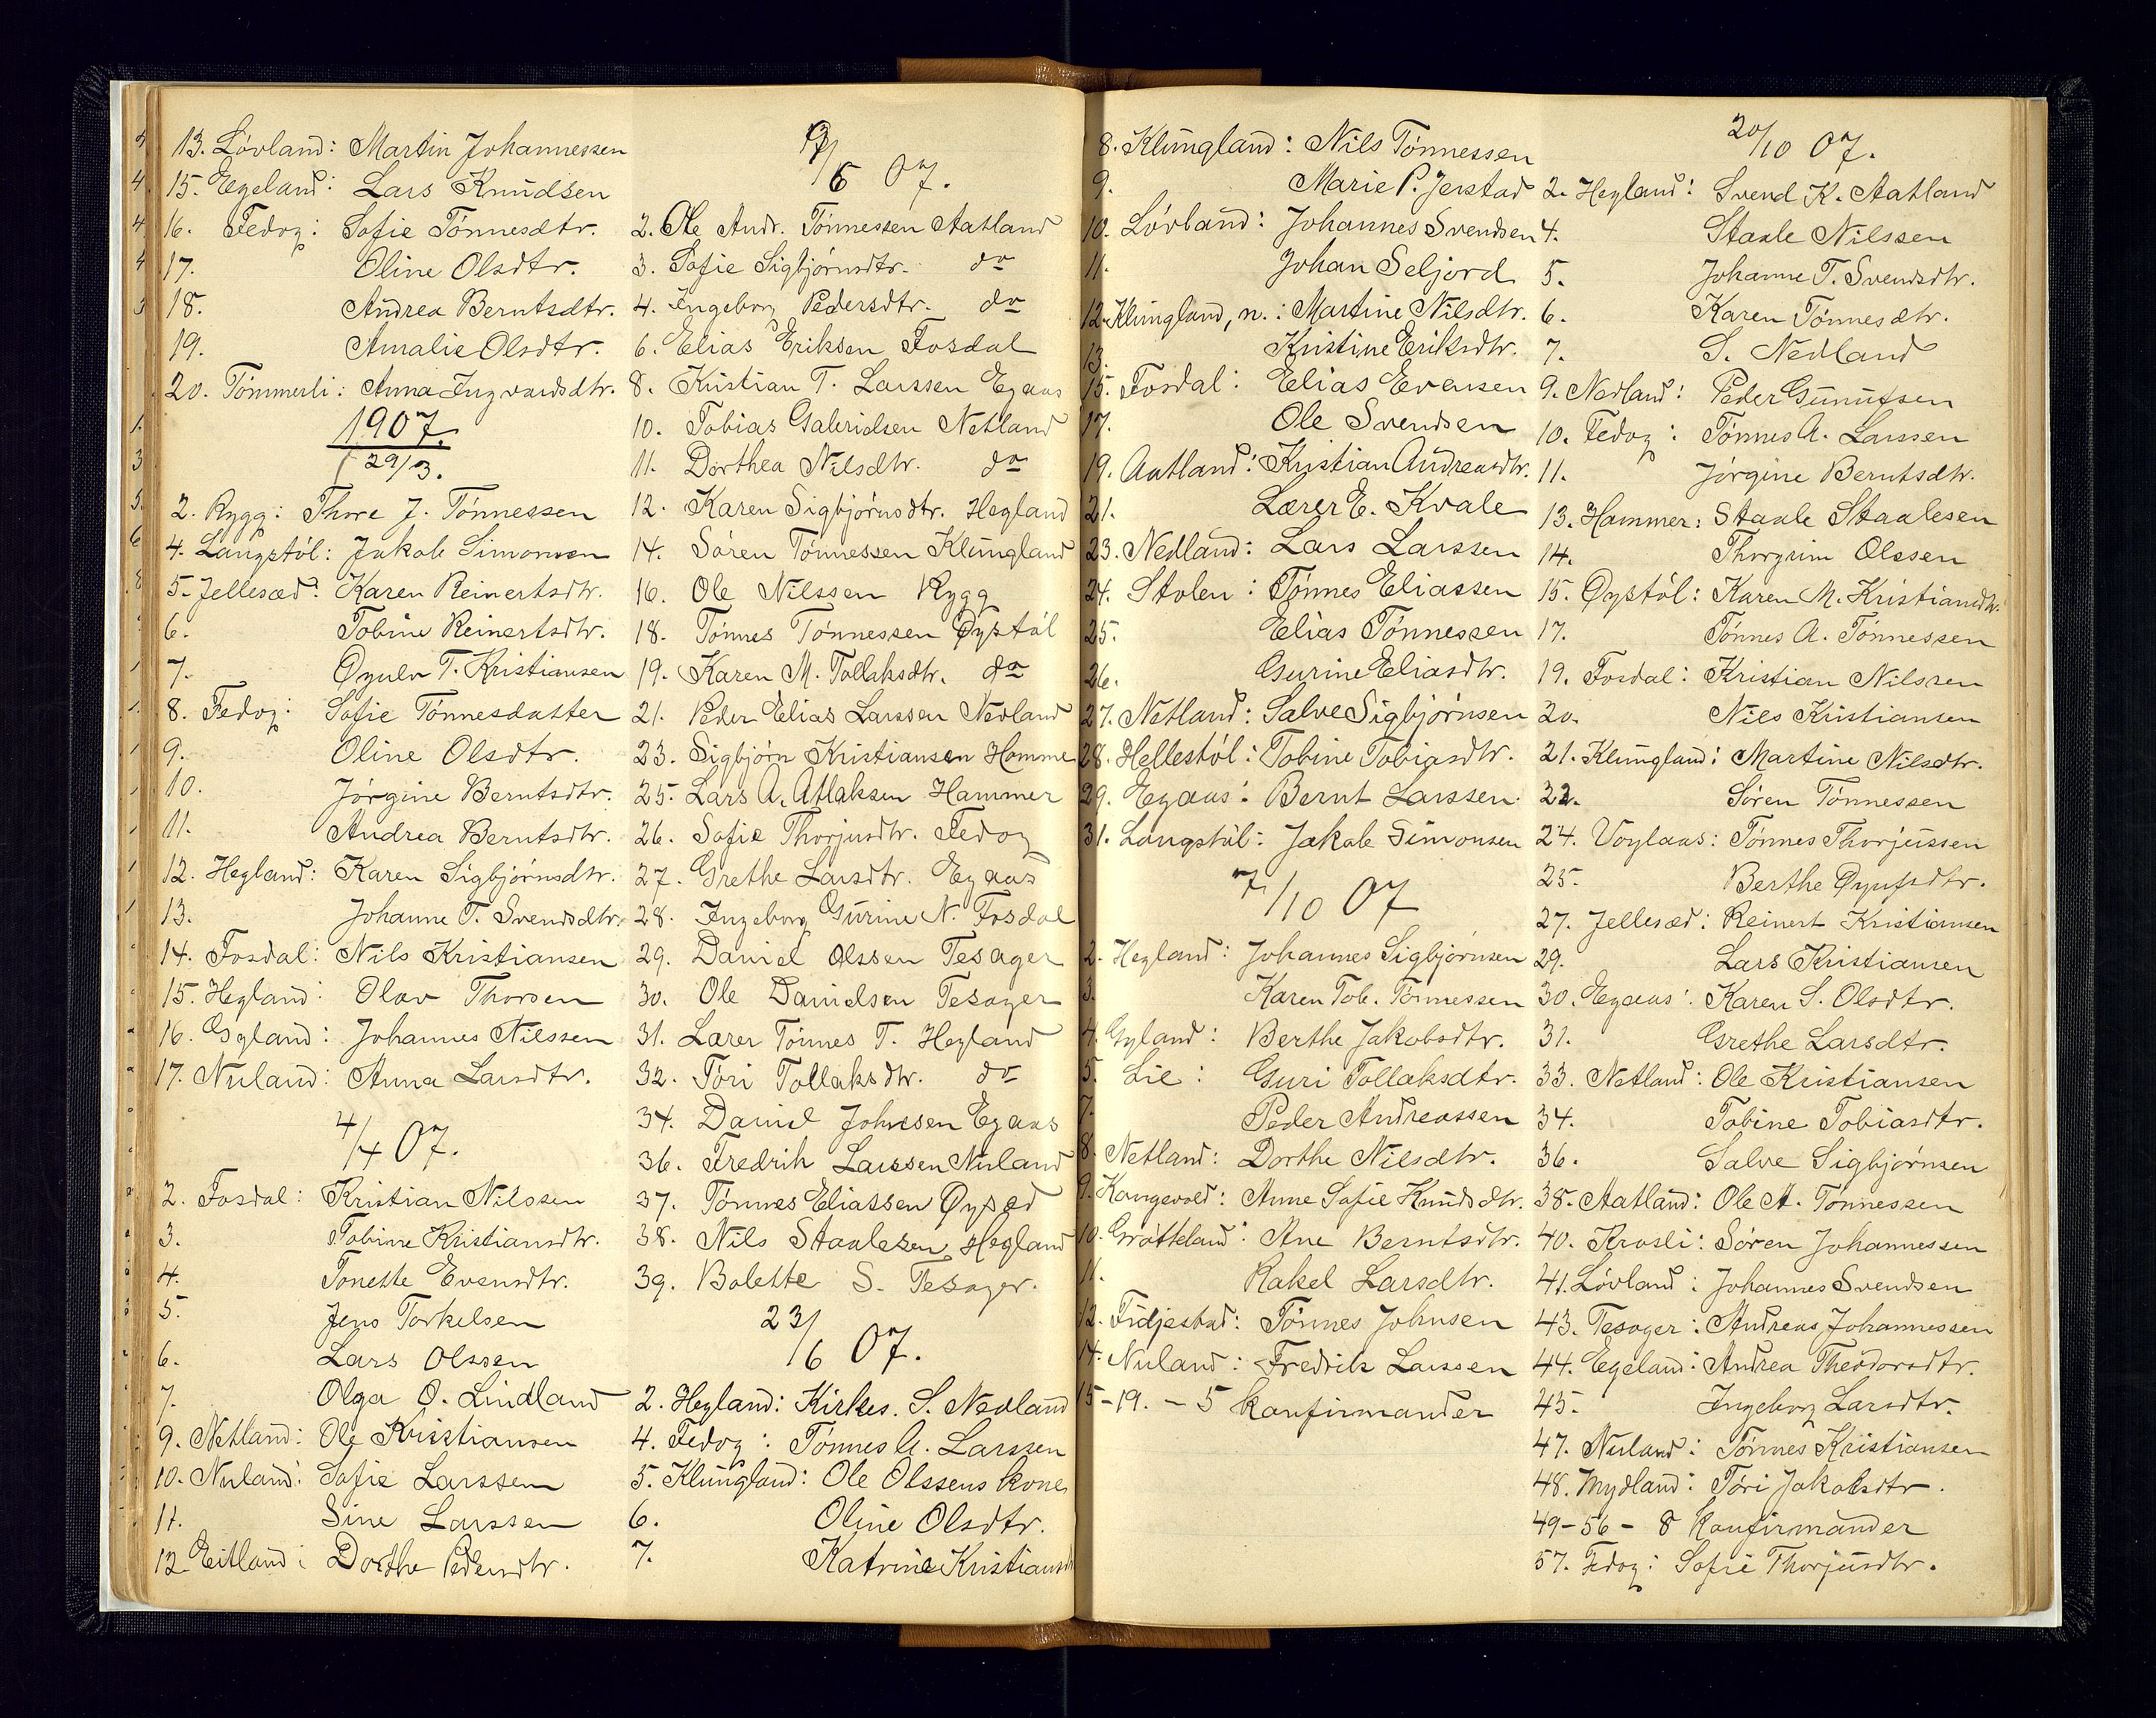 13. Lóvland: Martin Johannessen
15. Egeland: Lars Knudsen
16. Fedog: Sofie Tónnesdtr.
17. Oline Olsdtr.
18. Andrea Berntsdtr.
19. Amalie Olsdtr.
20. Tómmerli: Anna Ingvardsdtr.
1907.
29/3.
2. Rygg: Thore J. Tónnessen
4. Langstól: Jakob Simonsen
5. Jellesæd: Karen Reinertsdtr.
6. Tobine Reinertsdtr.
7. Øyulv T. Kristiansen
8. Fedog: Sofie Tónnesdatter
9. Oline Olsdtr.
10. Jórgine Berntsdtr.
11. Andrea Berntsdtr.
12. Hegland: Karen Sigbjórnsdtr.
13. Johanne T. Svendsdtr.
14. Fosdal: Nils Kristiansen
15. Hegland: Olav Thorsen
16. Gyland: Johannes Nilssen
17. Nuland: Anna Larsdtr.
4/4 07.
2. Fosdal: Kristian Nilssen
3. Tobine Kristiansdtr.
4. Tonette Evensdtr.
5. Jens Torkelsen
6. Lars Olssen
7. Olga O. Lindland
9. Netland: Ole Kristiansen
10. Nuland: Sofie Larssen
11. Sine Larssen
12. Eitland: Dorthe Pedersdtr.
9/6 07.
2. Ole Andr. Tónnessen Aatland
3. Sofie Sigbjórnsdtr. do
4. Ingeborg Pedersdtr. do
6. Elias Eriksen Fosdal
8. Kristian T. Larssen Egaas
10. Tobias Gabrielsen Netland
11. Dorthea Nilsdtr. do
12. Karen Sigbjórnsdtr. Hegland
14. Sóren Tónnessen Klungland
16. Ole Nilssen Rygg
18. Tónnes Tónnessen Øystól
19. Karen M. Tollaksdtr. do
21. Peder Elias Larssen Nedland
23. Sigbjórn Kristiansen Hamme
25. Lars A. Atlaksen Hammer
26. Sofie Thorjusdtr. Fedog
27. Grethe Larsdtr. Egaas
28. Ingeborg Gurine N. Fosdal
29. Daniel Olssen Tesager
30. Ole Danielsen Tesager
31. Lærer Tónnes T. Hegland
32. Tóri Tollaksdtr. do
34. Daniel Johnsen Egaas
36. Fredrik Larssen Nuland
37. Tónnes Eliassen Øysæd
38. Nils Staalesen Hegland
39. Bolette S. Tesager.
23/6 07.
2. Hegland: Kirkes. S. Nedland
4. Fedog: Tónnes A. Larssen
5. Klungland: Ole Olssens kone
6. Oline Olsdtr.
7. Katrine Kristiansdt
8. Klungland: Nils Tónnessen
9. Marie P. Jerstad
10. Lóvland: Johannes Svendsen
11. Johan Seljord
12. Klungland, n.: Martine Nilsdtr.
13. Kristine Eriksdtr.
15. Fosdal: Elias Evensen
17. Ole Svendsen
19. Aatland: Kristian Andreasdtr.
21. Lærer E. Kvale
23. Nedland: Lars Larssen
24. Stolen: Tónnes Eliassen
25. Elias Tónnessen
26. Gurine Eliasdtr.
27. Netland: Salve Sigbjórnsen
28. Hellestól: Tobine Tobiasdtr.
29. Egaas: Bernt Larssen.
31. Langstól: Jakob Simonsen
7/10 07
2. Hegland: Johannes Sigbjórnsen
3. Karen Tob. Tónnessen
4. Gyland: Berthe Jakobsdtr.
5. Lie: Guri Tollaksdtr.
7. Peder Andreassen
8. Netland: Dorthe Nilsdtr.
9. Kongevold: Anne Sofie Knudsdtr.
10. Grótteland: Ane Berntsdtr.
11. Rakel Larsdtr.
12. Fidjestad: Tónnes Johnsen
14. Nuland: Fredrik Larssen
15-19. - 5 konfirmander
20/10 07.
2. Hegland: Svend K. Aatland
4. Staale Nilssen
5. Johanne T. Svendsdtr.
6. Karen Tónnesdtr.
7. S. Nedland
9. Nedland: Peder Gunufsen
10. Fedog: Tónnes A. Larssen
11. Jórgine Berntsdtr.
13. Hammer: Staale Staalesen
14. Thorgrim Olssen
15. Øystól: Karen M. Kristiansdtr.
17. Tónnes A. Tónnessen
19. Fosdal: Kristian Nilssen
20. Nils Kristiansen
21. Klungland: Martine Nilsdtr.
22. Sóren Tónnessen
24. Voglaas: Tónnes Thorjussen
25. Berthe Øyufsdtr.
27. Jellesæd: Reinert Kristiansen
29. Lars Kristiansen
30. Egaas: Karen S. Olsdtr.
31. Grethe Larsdtr.
33. Netland: Ole Kristiansen
34. Tobine Tobiasdtr.
36. Salve Sigbjórnsen
38. Aatland: Ole A. Tónnessen
40. Krosli: Sóren Johannessen
41. Lóvland: Johannes Svendsen
43. Tesager: Andreas Johannessen
44. Egeland: Andrea Theodorsdtr.
45. Ingeborg Larsdtr.
47. Nuland: Tónnes Kristiansen
48. Mydland: Tóri Jakobsdtr.
49-56 - 8 konfirmander
57. Fedog: Sofie Thorjusdtr.